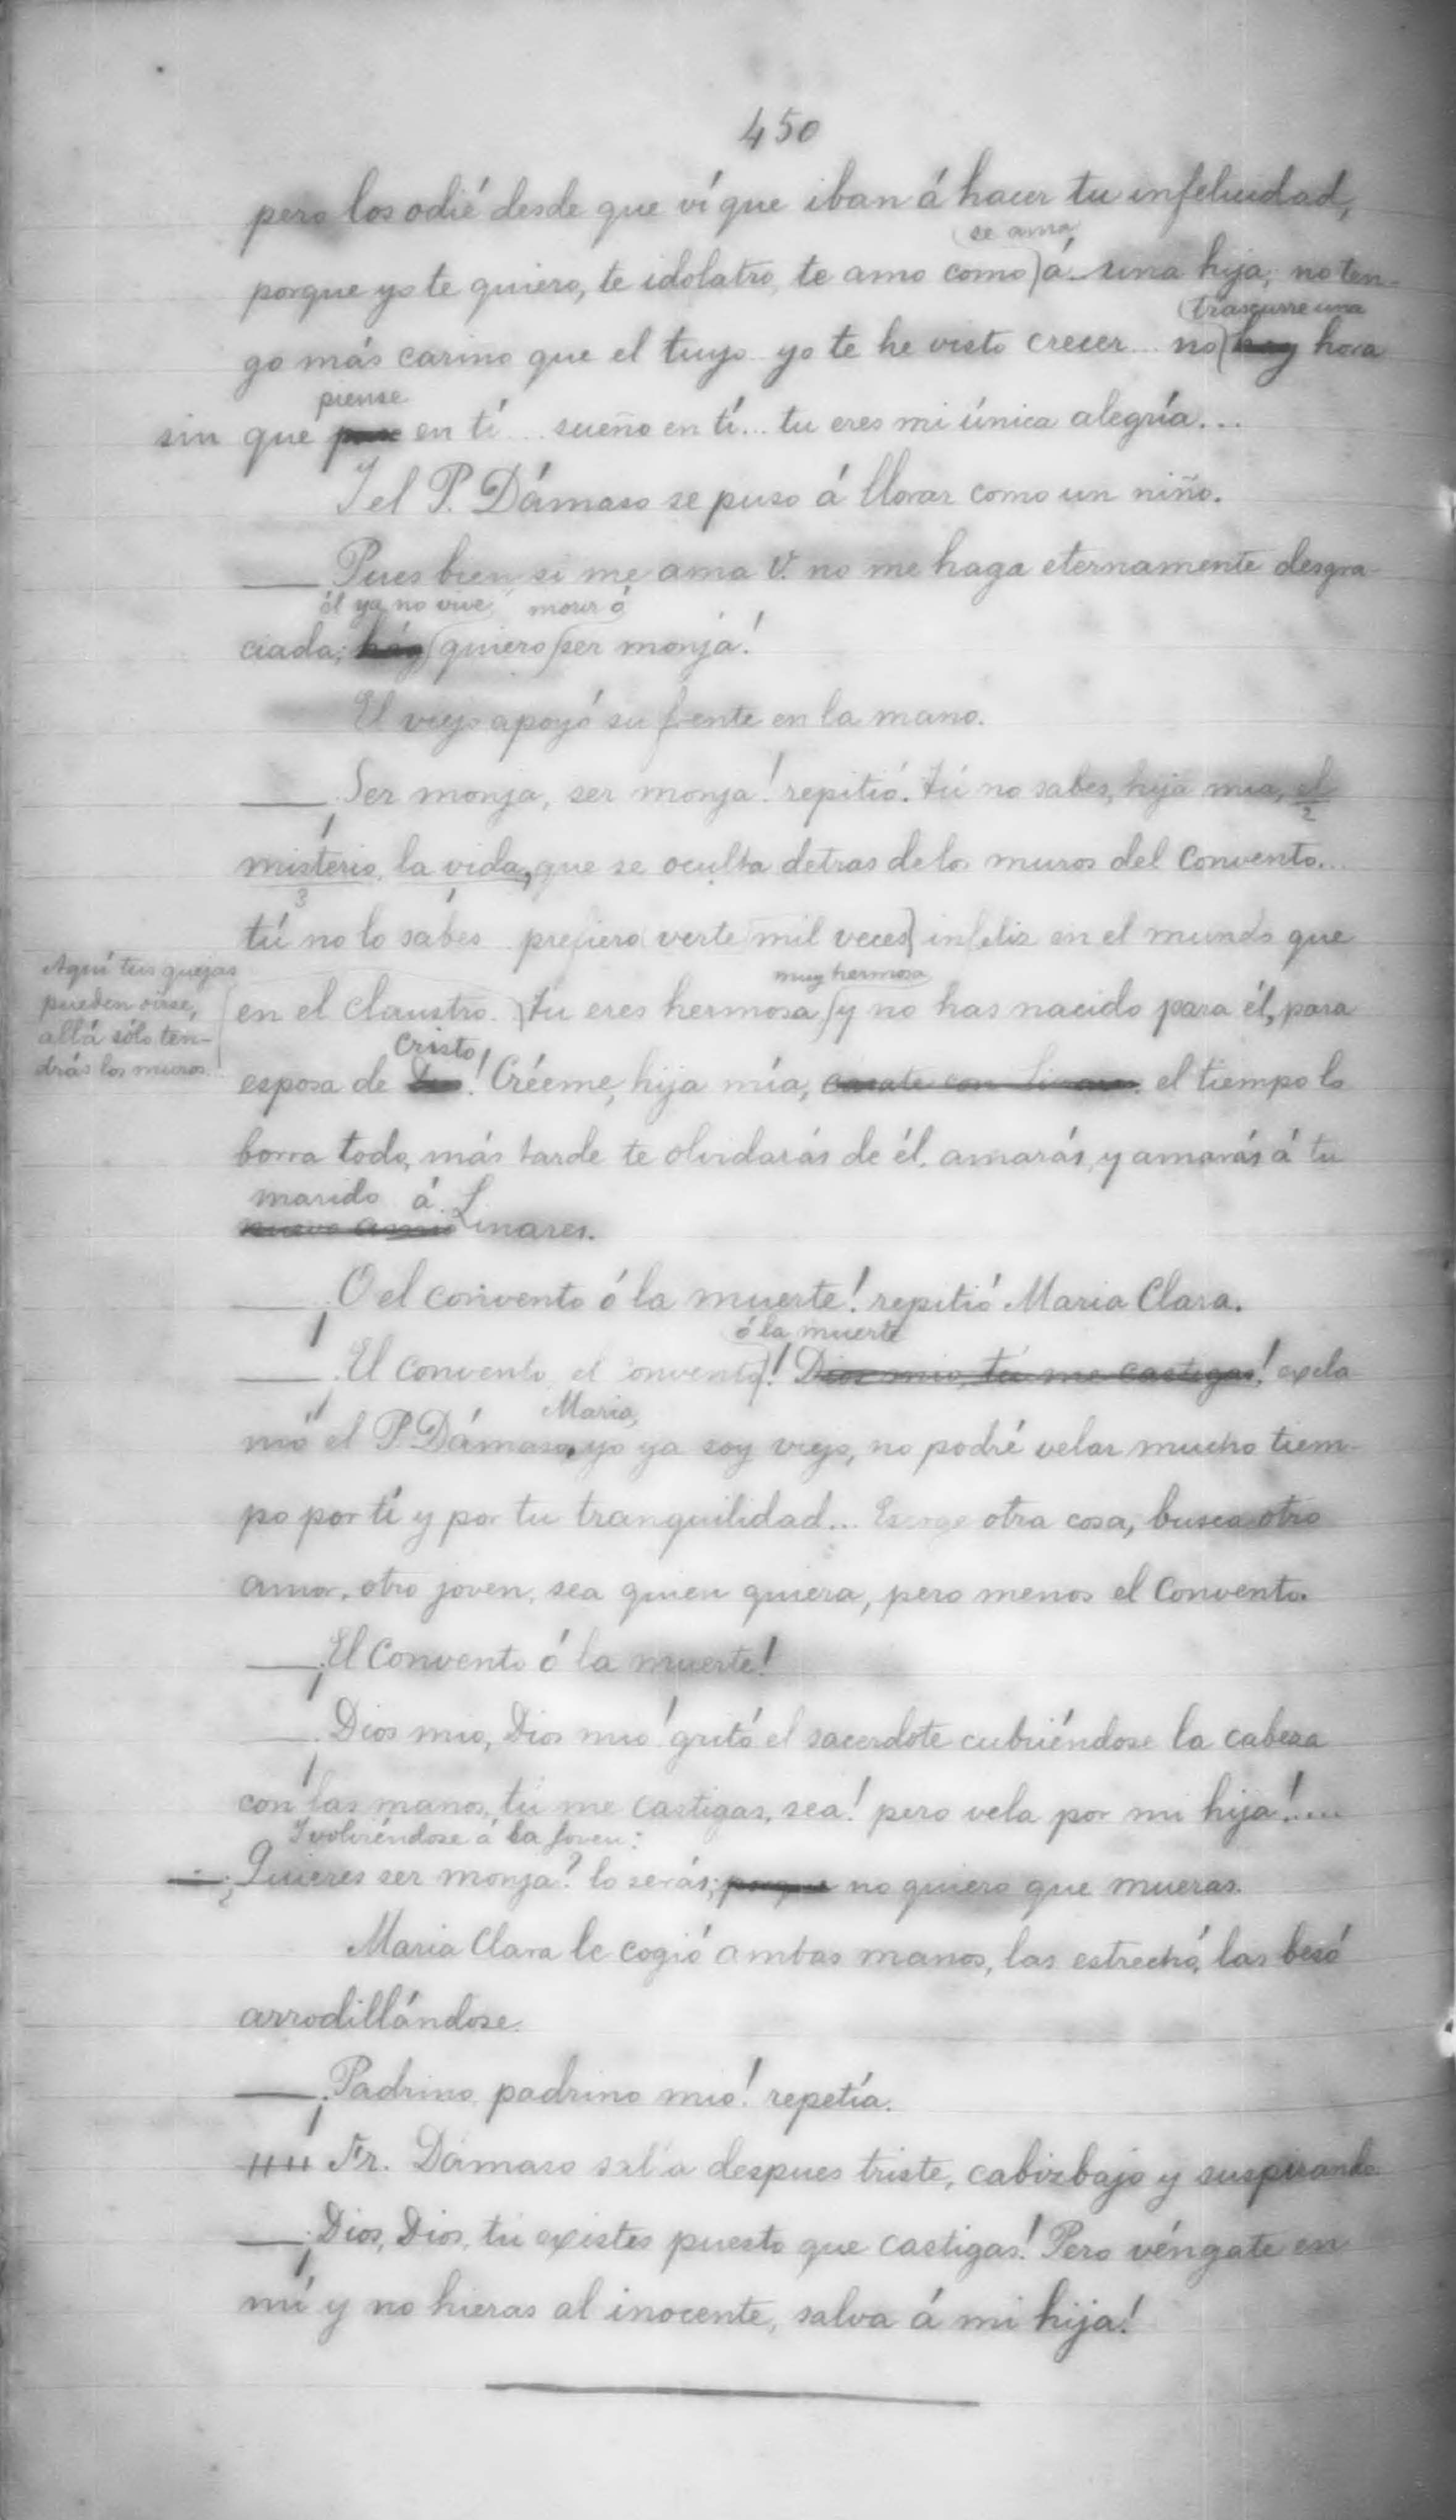 450
pero los odié desde que ví que iban á hacer tu infelicidad,
se ama
porque yo te quiero, te idolatro, te amo como á una hija; no ten-
trascurre una
go más cariño que el tuyo yo te he visto crecer... no hay hora
piense
sin que en tí... sueño en tí... tu eres mi única alegría...
Y el P. Dámaso se puso á llorar como un niño.
— Pues bien si me ama V. no me haga eternamente desgra-
él ya no vive, morir ó
ciada; quiero ser monja!
El viejo apoyó su frente en la mano.
— ¡Ser monja, ser monja! repitió. tú no sabes, hija mia, el
2
misterio, la vida, que se oculta detras de los muros del Convento...
3 1
tú no lo sabes prefiero verte mil veces infeliz en el mundo que
Aquí tus quejas
pueden oirse,
allá sólo ten-
drás los muros...
muy hermosa
en el claustro. tu eres hermosa y no has nacido para él, para
Cristo
esposa de ! Créeme, hija mía, casate con Linares. el tiempo lo
borra todo, más tarde te olvidarás de él. amarás, y amarás á tu
marido á
nuevo Linares.
— ¡O el convento ó la muerte! repitió Maria Clara.
ó la muerte
— ¡El Convento, el convento! Dios mio, tú me castigas! excla
Maria,
mó el P. Dámaso, yo ya soy viejo, no podré velar mucho tiem-
po por tí y por tu tranquilidad... Escoge otra cosa, busca otro
amor, otro joven, sea quien quiera, pero menos el Convento.
— ¡El Convento ó la muerte!
— ¡Dios mio, Dios mio! gritó el sacerdote cubriéndose la cabeza
con las manos, tú me castigas, sea! pero vela por mi hija!....
Y volviéndose á la joven:
— ¿Quieres ser monja? lo serás; porque no quiero que mueras.
Maria Clara le cogió ambas manos, las estrechó, las besó
arrodillándose.
— ¡Padrino, padrino mio! repetía.
Fr. Dámaso salía despues triste, cabizbajo y suspirando.
— ¡Dios, Dios, tú existes puesto que castigas! Pero véngate en
mí y no hieras al inocente, salva á mi hija!